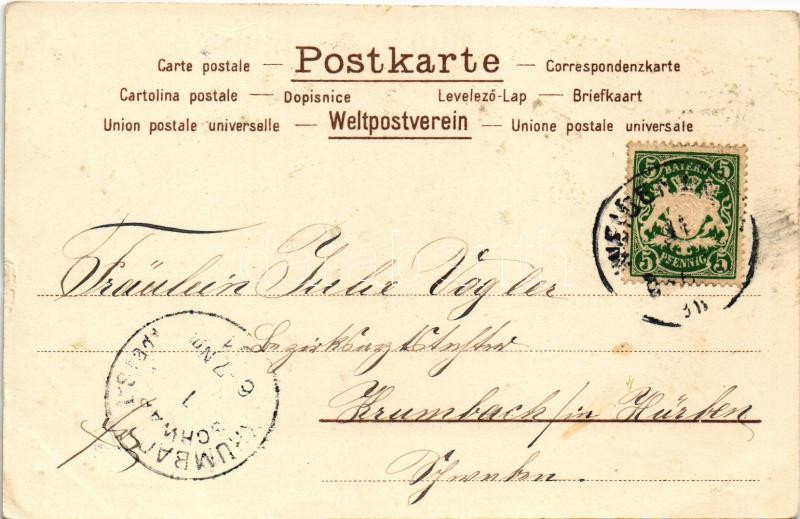 Postkarte
Carte postale — — Correspondenzkarte
Cartolina postale — Dopisnice Levelező-Lap — Briefkaart
Union postale universelle — Weltpostverein — Unione postale universale
5 BAYERN 5
5 PFENNIG 5
Fräulein Julie Vogler
Bezirksarztstochter
Krumbach/in Hürben
Schwaben.
KRUMBACH
SCHWA
7 Nm